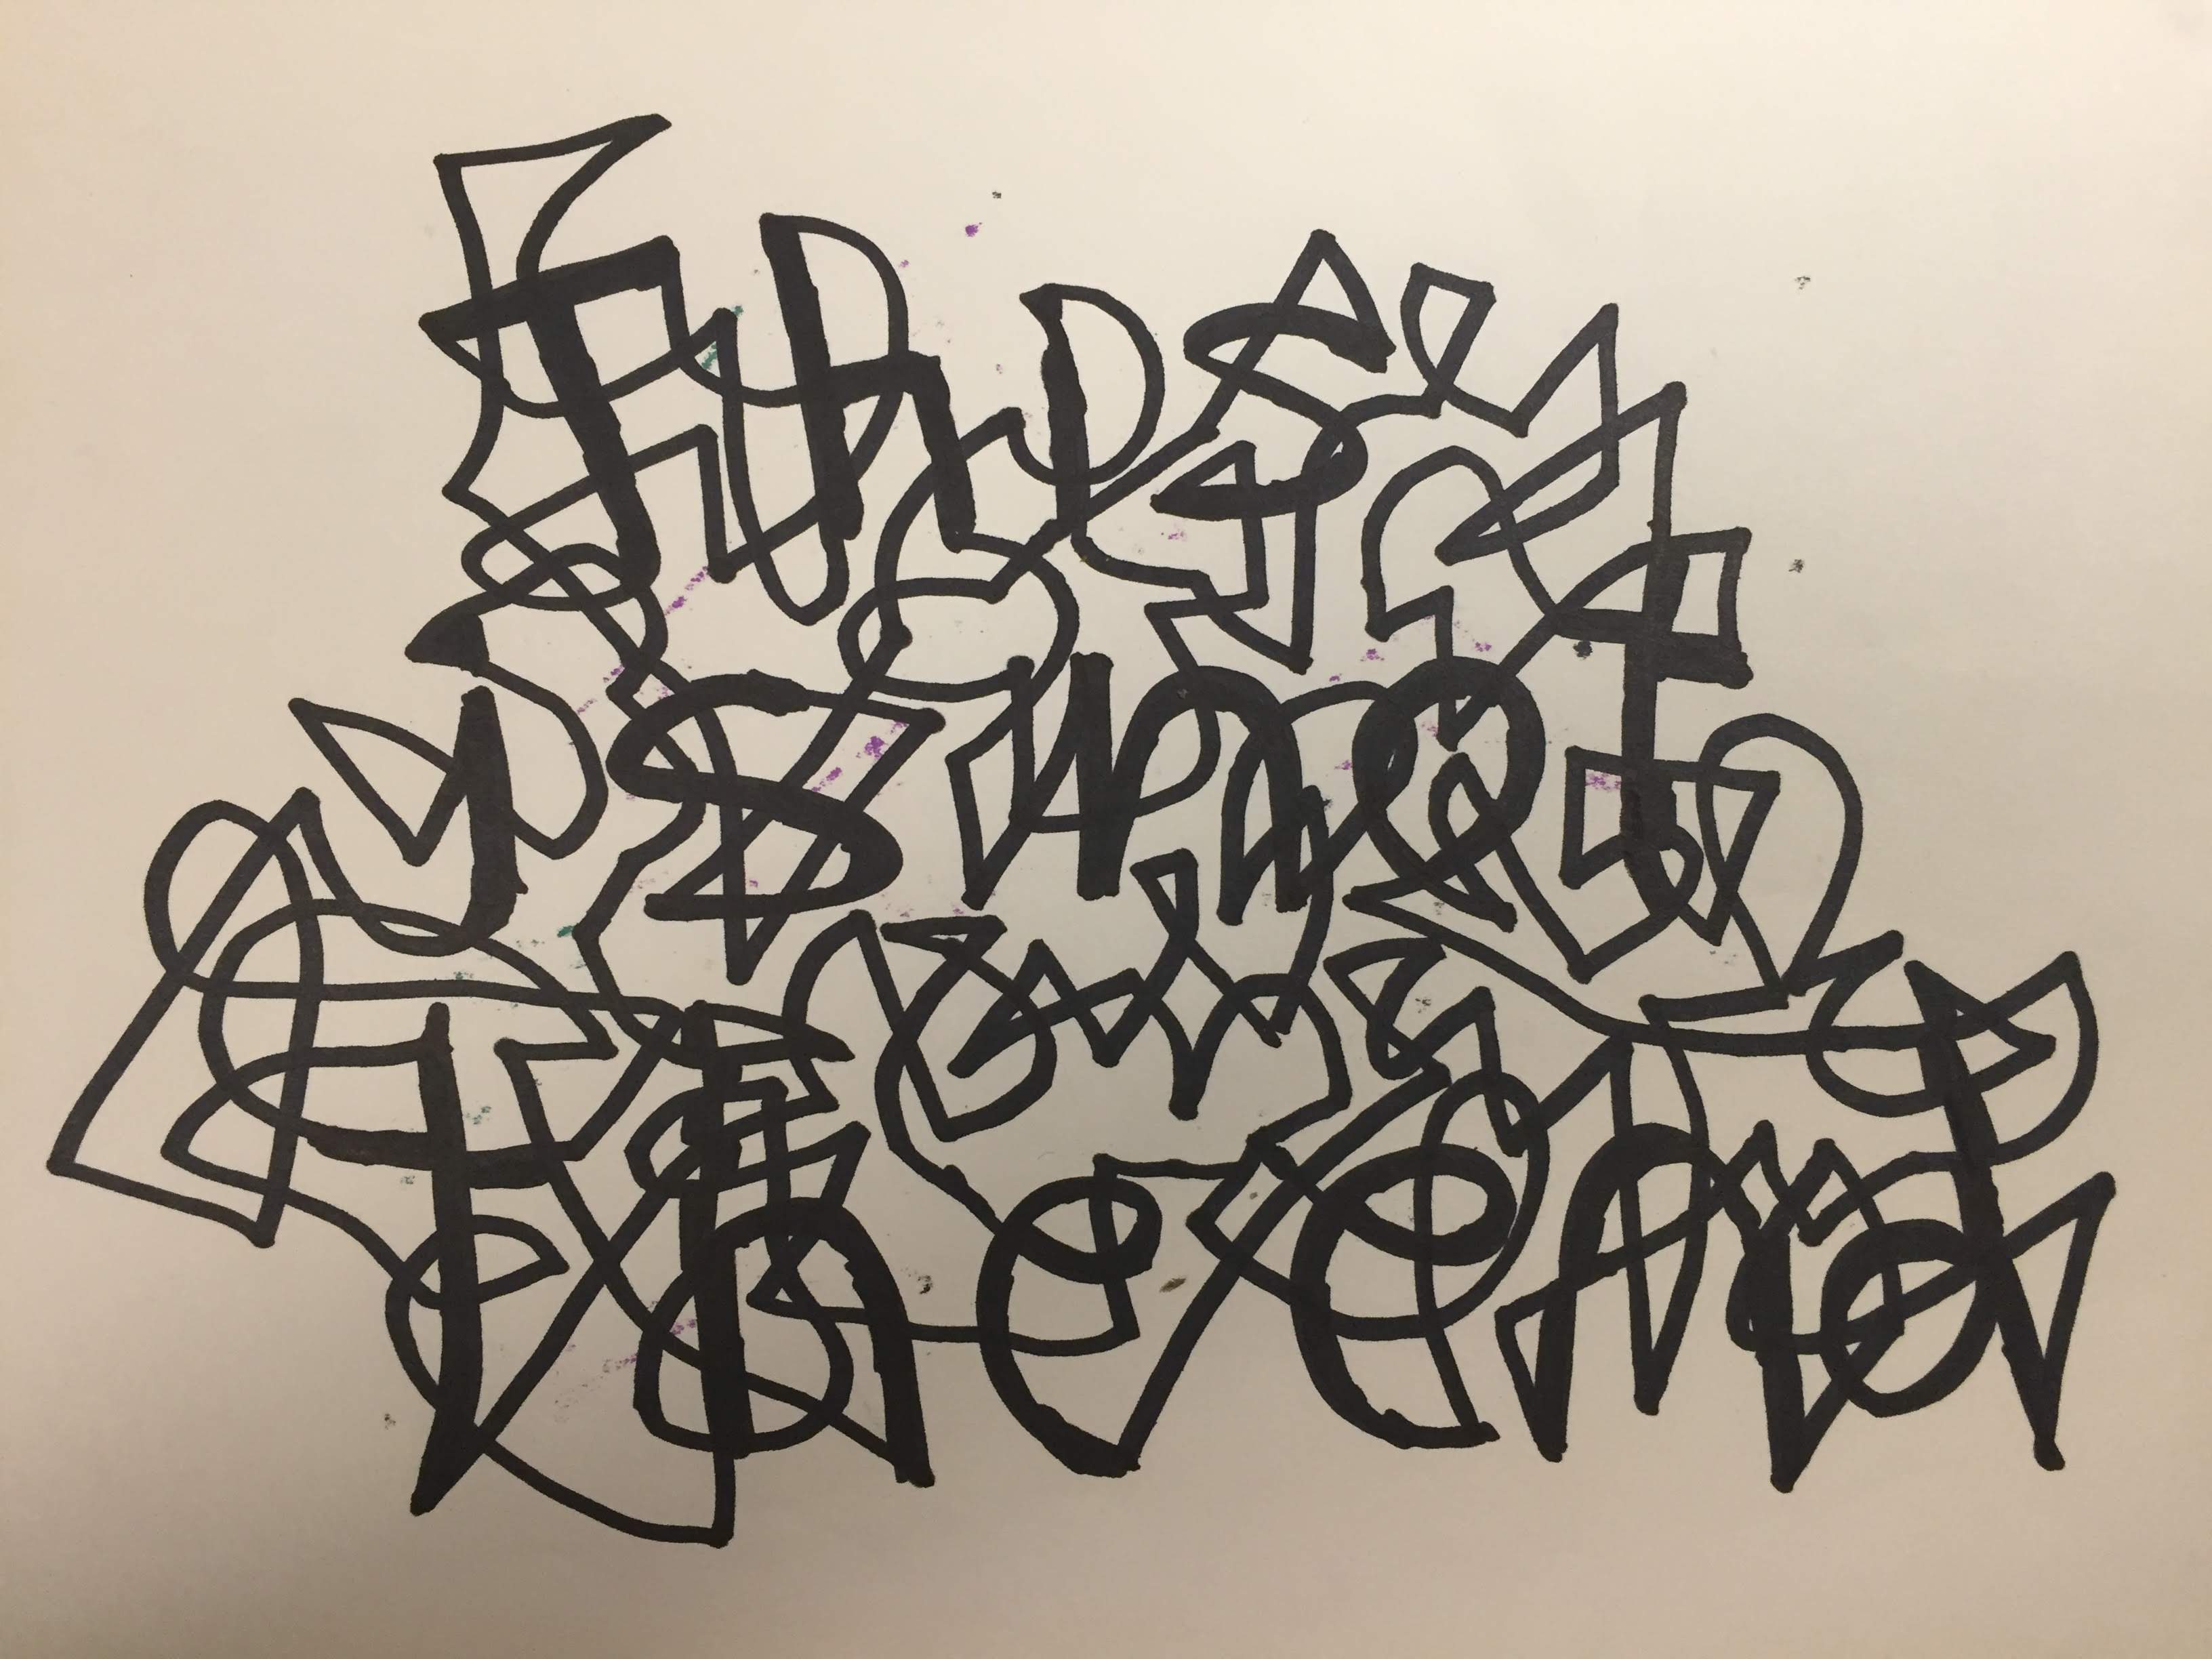 This
is not
the end